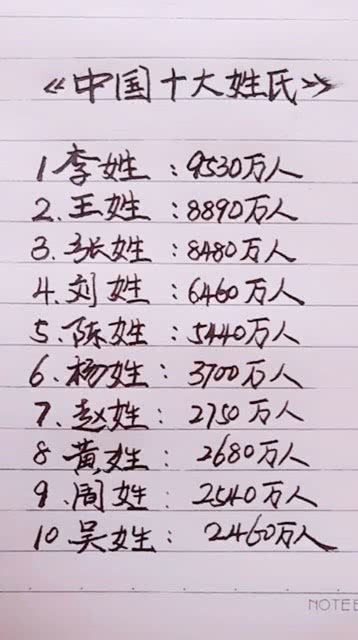 《中国十大姓氏》
1 李姓：9530万人
2、王姓：8890万人
3、张姓：8480万人
4、刘姓：6460万人
5、陈姓：5440万人
6、杨姓：3700万人
7、赵姓：2750万人
8 黄姓：2680万人
9、周姓：2540万人
10 吴姓：2460万人